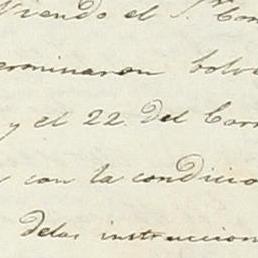 Viendo el S.r Con
erminaron bolv
y el 22. del Corr
con la condicio
delas instruccion